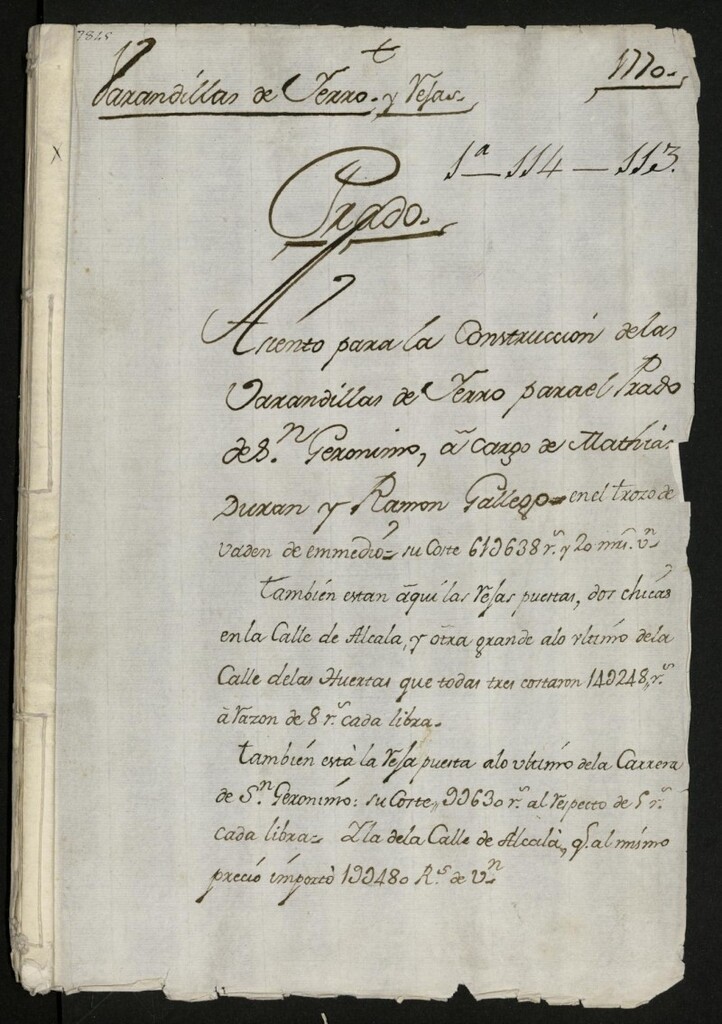 7815
Varandillas de Yerro. y Rejas.
1770.
1ª 114 — 113.
Prado.
Asiento para la Construccion delas
Varandillas de Yerro parael Prado
de S.n Geronimo, â cargo de Mathias
Duran y Ramon Gallego en el trozo de
vaden de emmedio= su Corte 619638 r.s y 20 mrs. vn
tambien estan âqui las Rejas puertas, dos chicas
en la Calle de Alcala, y otra grande alo vltimo dela
Calle delas Huertas que todas tres costaron 149248,, r.s
â razon de 8 r.s cada libra.
tambien està la Reja puerta alo vltimo dela Carrera
de S.n Geronimo: su Corte,, 99630 r.s al respecto de 5 r.s
cada libra= Y la dela Calle de Alcalà, q.e al mismo
precio importò 199480 R.s de v.n